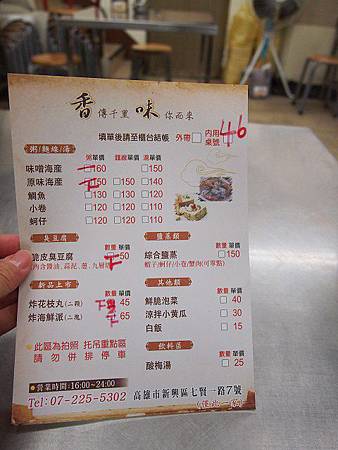 香傳千里 味你而來
填單後請至櫃台結帳 外帶□ 內用桌號 46
粥/麵線/湯 粥單價 麵線單價 湯單價
味噌海產 □160 □150
原味海產 □150 □150 □140
鯛魚 □130 □130 □120
小卷 □120 □120 □110
蚵仔 □120 □120 □110
臭豆腐 數量 單價
脆皮臭豆腐 □50
(內含醬油、蒜泥、蔥、九層塔)
鹽蒸類 數量 單價
綜合鹽蒸 □150
蝦子/蚵仔/小卷/蟹肉(可單點)
新品上市 數量 單價
炸花枝丸(二顆) 45
炸海鮮派(二塊) 65
其他類 數量 單價
鮮脆泡菜 □ 40
涼拌小黃瓜 □ 30
白飯 □ 15
飲料區
酸梅湯 □ 25
此區為拍照 托吊重點區
請勿併排停車
營業時間:16:00~24:00
Tel: 07-225-5302 高雄市新興區七賢一路7號